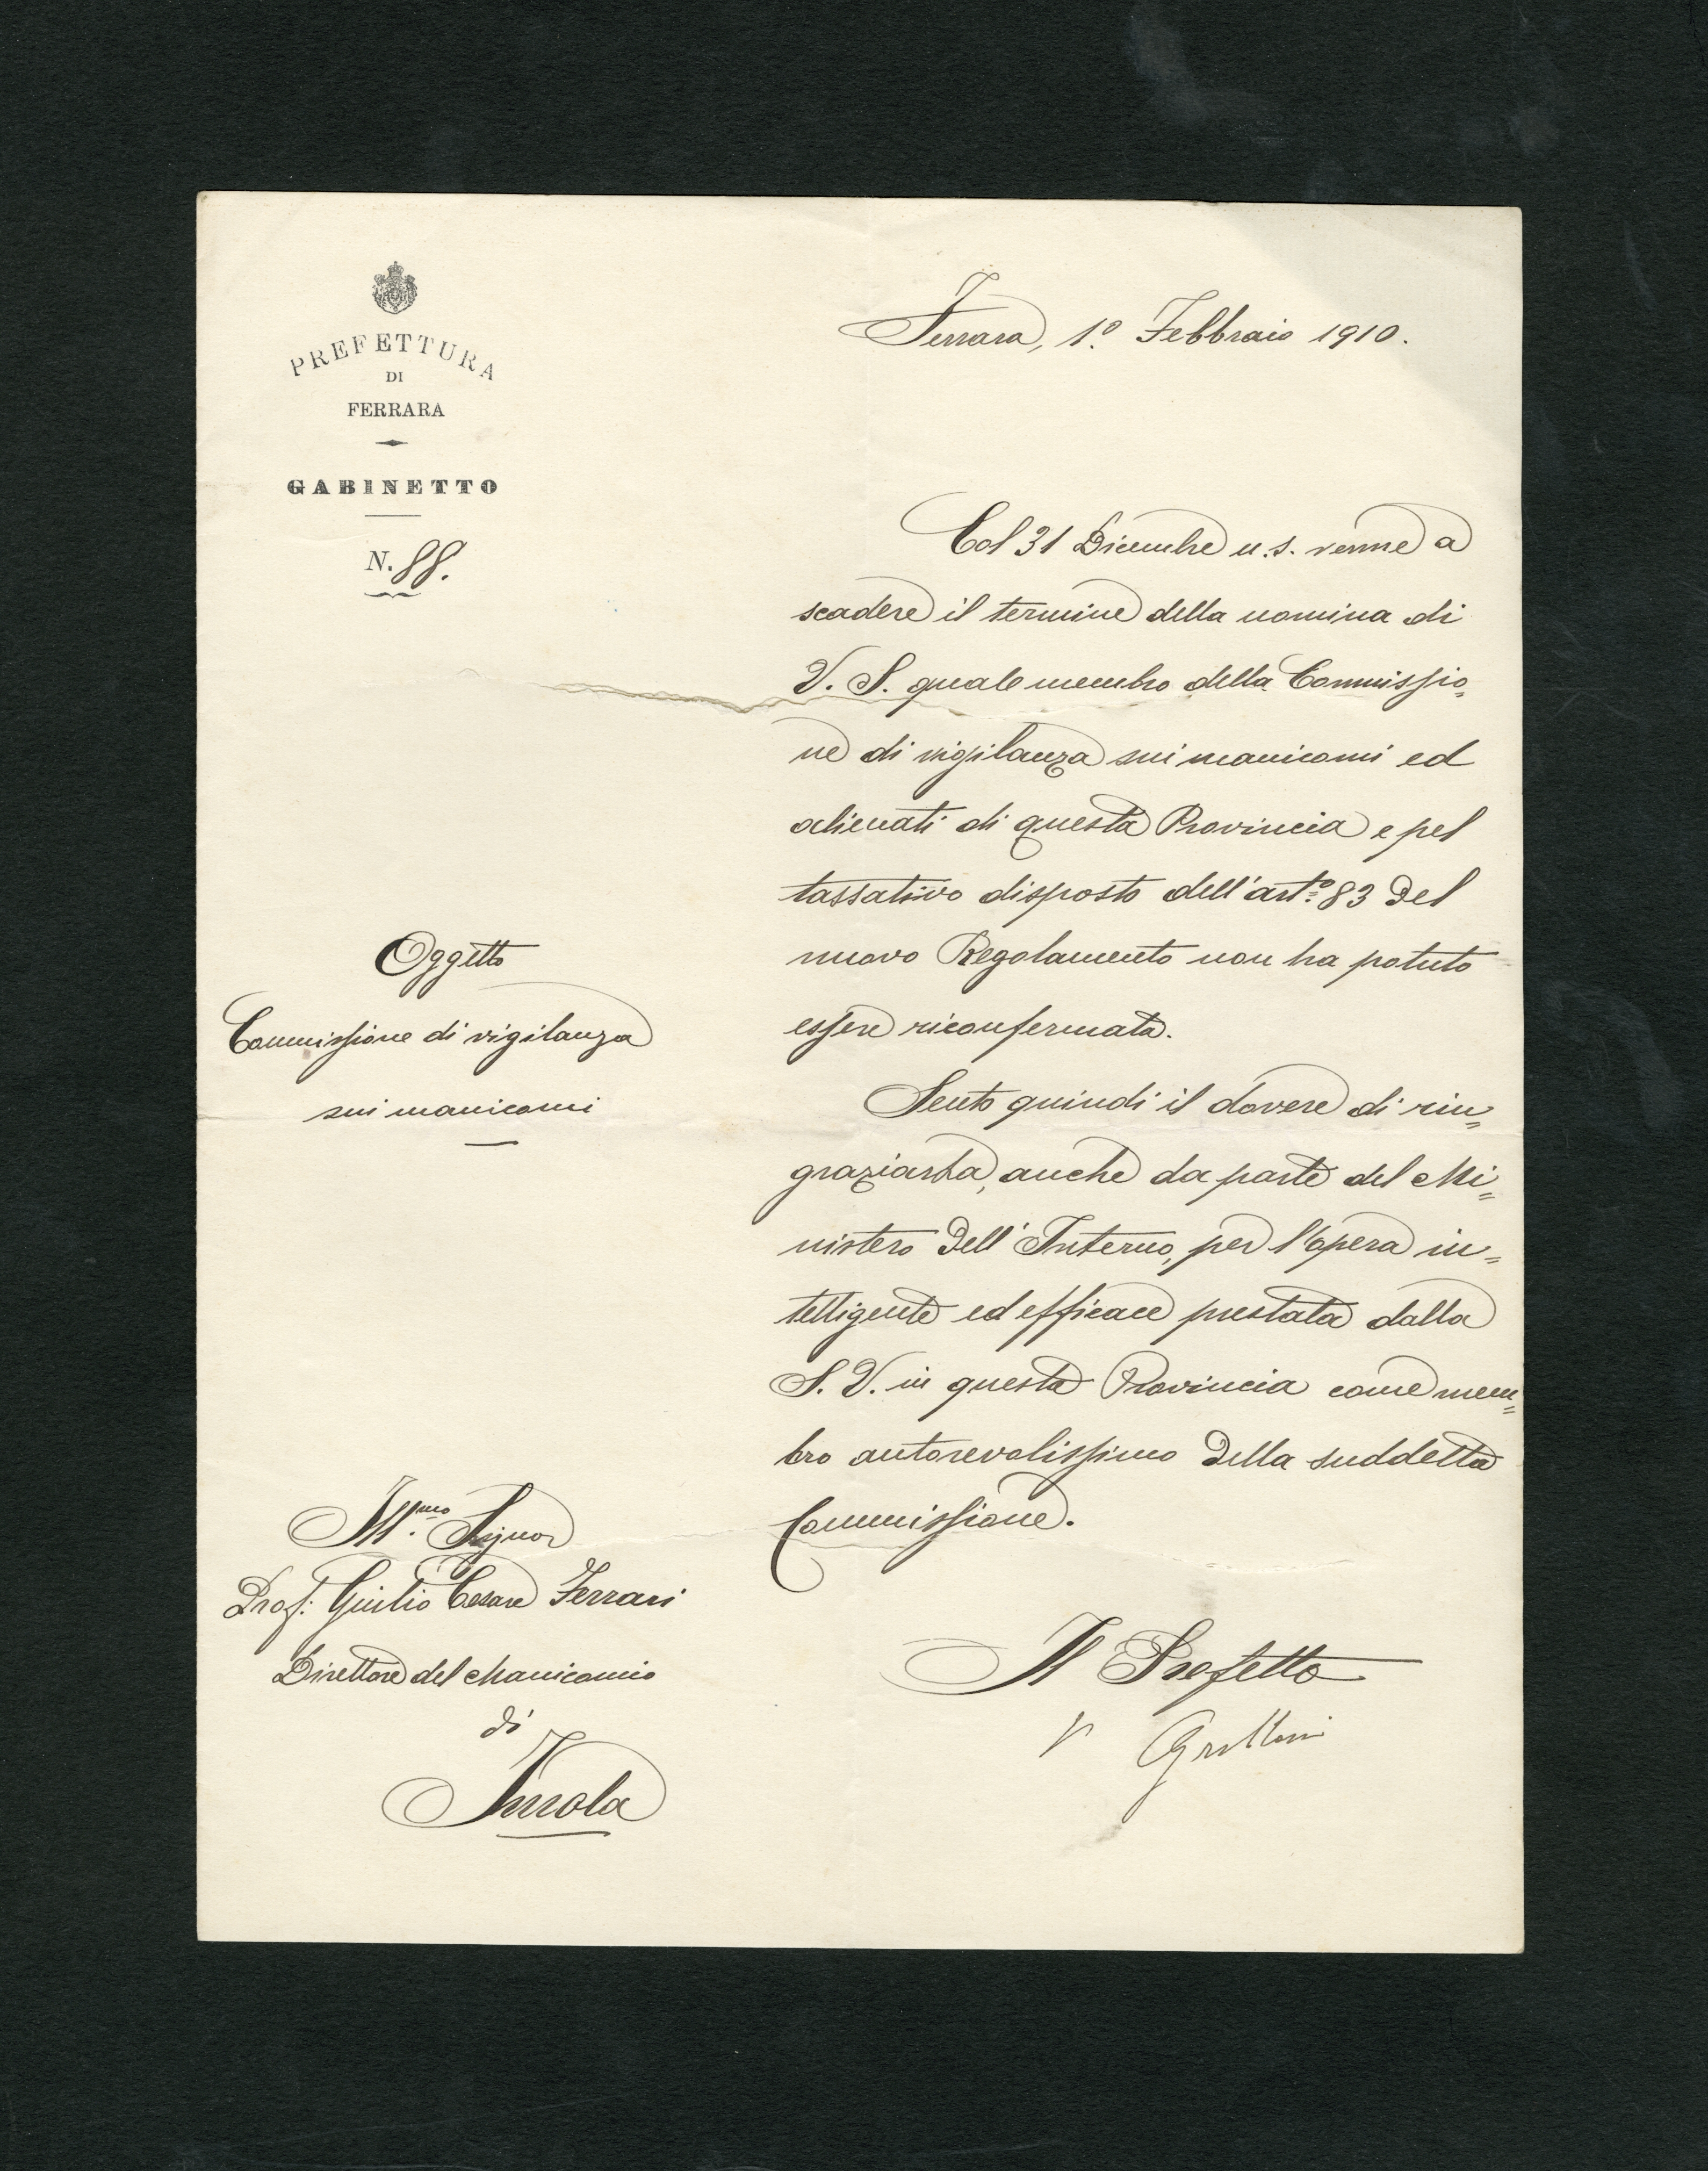 PREFETTURA
DI
FERRARA
GABINETTO
N. 88.
Ferrara, 1.º Febbraio 1910.
Oggetto
Commissione di vigilanza
sui manicomi
Col 31 Dicembre u.s. venne a
scadere il termine della nomina di
V. S. quale membro della Commissio„
ne di vigilanza sui manicomi ed
alienati di questa Provincia e pel
tassativo disposto dell'art.º 83 del
nuovo Regolamento non ha potuto
essere riconfermata.
Sento quindi il dovere di rin„
graziarla, anche da parte del Mi„
nistero dell'Interno, per l'opera in„
telligente ed efficace prestata dalla
S. V. in questa Provincia come mem„
bro autorevolissimo della suddetta
Commissione.
Il Prefetto
Ill.mo Signor
Prof. Giulio Cesare Ferrari
Direttore del Manicomio
di
Imola